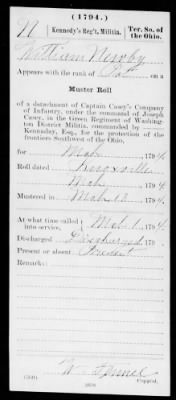 (1794.)
N Kennedy's Reg't, Militia. Ter. So. of the Ohio.
William Newby
Appears with the rank of Pvt on a
Muster Roll
of a detachment of Captain Casey's Company
of Infantry, under the command of Joseph
Casey, in the Green Regiment of Washing-
ton District Militia, commanded by
Kennaday, Esq., for the protection of the
frontiers Southwest of the Ohio,
for Mch , 1794
Roll dated Knoxville
Mch , 1794
Mustered in Mch 13 , 1794
At what time called into service, Mch 1 , 1794
Discharged Discharged 179
Present or absent Present
Remarks:
Copyist.